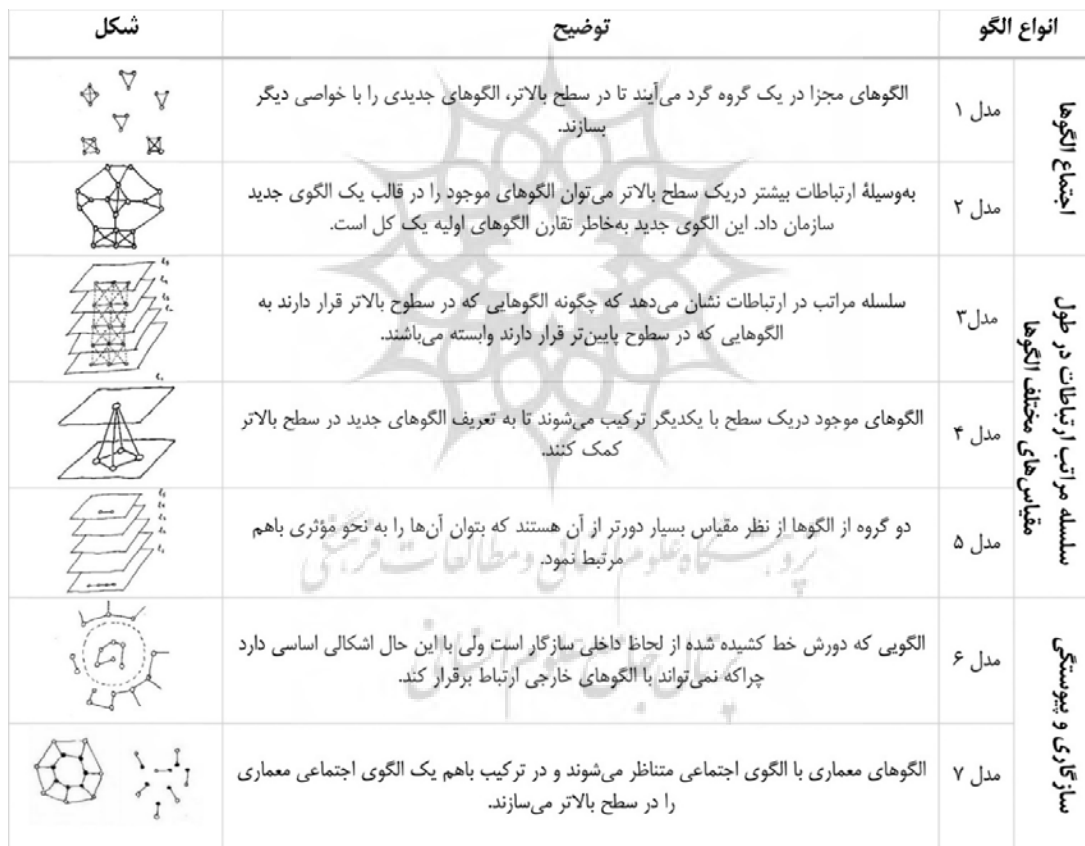 انواع الگو
توضیح
شکل
اجتماع الگوها
مدل ۱
الگوهای مجزا در یک گروه گرد می‌آیند تا در سطح بالاتر، الگوهای جدیدی را با خواصی دیگر
بسازند.
مدل ۲
به‌وسیلۀ ارتباطات بیشتر دریک سطح بالاتر می‌توان الگوهای موجود را در قالب یک الگوی جدید
سازمان داد. این الگوی جدید به‌خاطر تقارن الگوهای اولیه یک کل است.
سلسله مراتب ارتباطات در طول
مقیاس‌های مختلف الگوها
مدل۳
سلسله مراتب در ارتباطات نشان می‌دهد که چگونه الگوهایی که در سطوح بالاتر قرار دارند به
الگوهایی که در سطوح پایین‌تر قرار دارند وابسته می‌باشند.
مدل ۴
الگوهای موجود دریک سطح با یکدیگر ترکیب می‌شوند تا به تعریف الگوهای جدید در سطح بالاتر
کمک کنند.
مدل ۵
دو گروه از الگوها از نظر مقیاس بسیار دورتر از آن هستند که بتوان آن‌ها را به نحو مؤثری باهم
مرتبط نمود.
پژوهشگاه علوم انسانی و مطالعات فرهنگی
سازگاری و پیوستگی
مدل ۶
الگویی که دورش خط کشیده شده از لحاظ داخلی سازگار است ولی با این حال اشکالی اساسی دارد
چراکه نمی‌تواند با الگوهای خارجی ارتباط برقرار کند.
پرتال جامع علوم انسانی
مدل ۷
الگوهای معماری با الگوی اجتماعی متناظر می‌شوند و در ترکیب باهم یک الگوی اجتماعی معماری
را در سطح بالاتر می‌سازند.